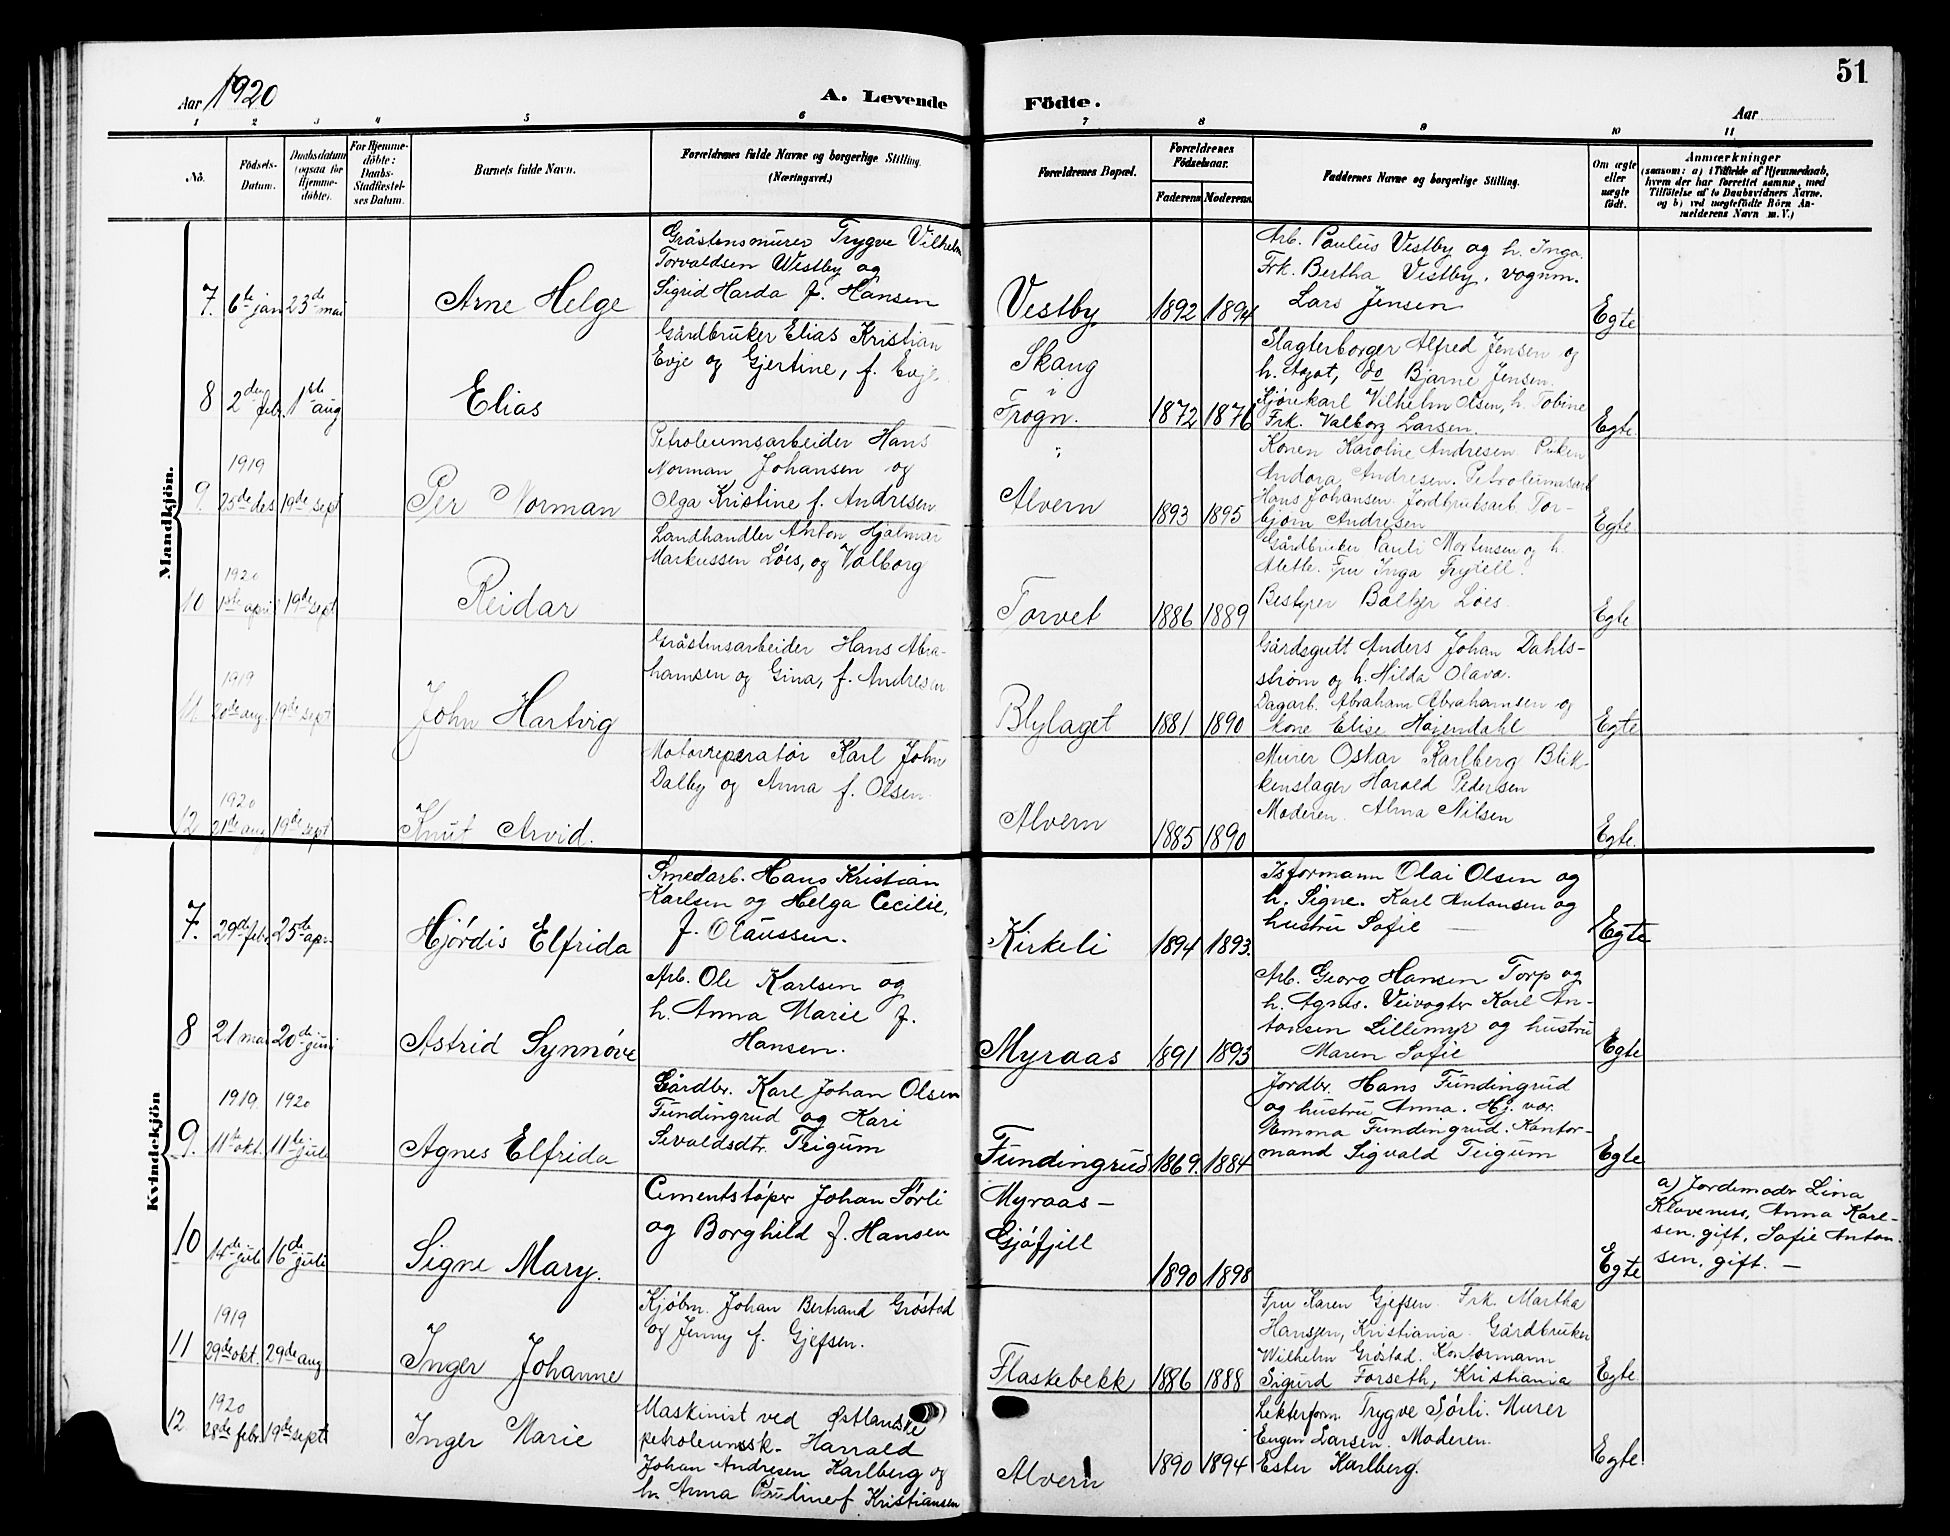 51
Aar 1920
A. Levende Födte.
Aar
1 2 3 4 5 6 7 8 9 10 11
Nō.
Födsels-
Datum.
Daabsdatum
(ogsaa for
Hjemme-
döbte).
For Hjemme-
döbte:
Daabs-
Stadfæstel-
ses Datum.
Barnets fulde Navn.
Forældrenes fulde Navne og borgerlige Stilling.
(Næringsvei.)
Forældrenes Bopæl.
Forældrenes
Födselsaar.
Faderens Moderens
Faddernes Navne og borgerlige Stilling.
Om ægte
eller
uægte
födt.
Anmærkninger
(saasom: a) i Tilfælde af Hjemmedaab,
hvem der har forrettet samme, med
Tilföielse af to Daabsvidners Navne,
og b) ved uægtefödte Börn An-
melderens Navn m. V.)
Mandkjön.
7. 6te jan 23de mai
Arne Helge
Gråstensmurer Trygve Vilhelm
Torvaldsen Westby og
Sigrid Harda f. Hansen
Vestby
1892 1894
Arb. Paulus Vestby og h. Inga.
Frk. Bertha Vestby, vognm.
Lars Jensen
Egte
8 2den febr. 1ste aug
Elias
Gårdbruker Elias Kristian
Evje og Gjertine, f. Evje
Skaug
i
Frogn.
1872 1876
Slagterborger Alfred Jensen og
h. Agot, do Bjarne Jensen.
Sjörekarl Vilhelm Olsen, h. Tobine
Frk. Valborg Larsen
Egte
9 1919
25de des 19de sept
Per Norman
Petroleumsarbeider Hans
Norman Johansen og
Olga Kristine f. Andresen
Alvern
1893 1895
Konen Karoline Andresen Piken
Andora Andresen. Petroleumsarb
Hans Johansen. Jordbruksarb. Tor-
björn Andresen
Egte
10 1920
1ste april 19de sept
Reidar
Landhandler Anton Hjalmar
Markussen Löes, og Valborg
Torvet
1886 1889
Gårdbruker Pauli Mortensen og h.
Alette. Fru Inga Fryxell.
Bestyrer Baltzer Löes.
Egte
11. 1919
20de aug. 19de sept
John Hartvig
Gråstensarbeider Hans Abra-
hamsen og Gina, f. Andresen
Blylaget
1881 1890
Gårdsgutt Anders Johan Dahls-
ström og h. Hilda Olava.
Dagarb. Abraham Abrahamsen og
kone Elise Høyendahl
Egte
12 1920
21de aug 19de sept
Knut Arvid.
Motorreperatör Karl John
Dalby og Anna f. Olsen
Alvern
1885 1890
Murer Oskar Karlberg Blik-
kenslager Harald Pedersen
Moderen. Alma Nilsen
Egte.
Kvindekjön
7. 29de febr 25de apr.
Hjördis Elfrida
Smedarb. Hans Kristian
Karlsen og Helga Cecilie,
f. Olaussen.
Kirkeli
1894 1893.
Isformann Olai Olsen og
h. Signe. Karl Antonsen og
hustru Sofie
Egte
8 21 mai 20de juni
Astrid Synnöve
Arb. Ole Karlsen og
h. Anna Marie f.
Hansen.
Myraas
1891 1893
Arb. Georg Hansen Torp og
h. Agnes. Veivogter Karl An-
tonsen Lillemyr og hustru
Maren Sofie
Egte
9. 1919 1920
11te okt. 11te juli
Agnes Elfrida
Gårdbr. Karl Johan Olsen
Fundingrud og Kari
Sevaldsdtr. Teigum
Fundingrud
1869. 1884
Jordbr. Hans Fundingrud
og hustru Anna. Hj. vor.
Emma Fundingrud. Kontor-
mand Sigvald Teigum
Egte
10 14de juli 16de juli
Signe Mary.
Cementstöper Johan Sörli
og Borghild f. Hansen
Myraas-
Gjöfjell
1890 1898
Egte
a) Jordemodr Lina
Klaveness, Anna Karl-
sen, gift, Sofie Anton
sen, gift. -
11 1919
29de okt. 29de aug
Inger Johanne
Kjöbm. Johan Bertrand Gröstad
og Jenny f. Gjefsen.
Flaskebekk
1886 1888
Fru Karen Gjefsen. Frk. Martha
Hansjen, Kristiania. Gårdbruker
Wilhelm Gröstad. Kontormann
Sigurd Forseth, Kristiania
Egte
12 1920
28de febr. 19de sept
Inger Marie
Maskinist ved Østlandske
petroleumssk. Harrald
Johan Andresen Karlberg og
h. Anna Pauline f. Kristiansen
Alvern
1890 1894
Lekterform. Trygve Sörli. Murer
Eugen Larsen. Moderen.
Ester Karlberg.
Egte